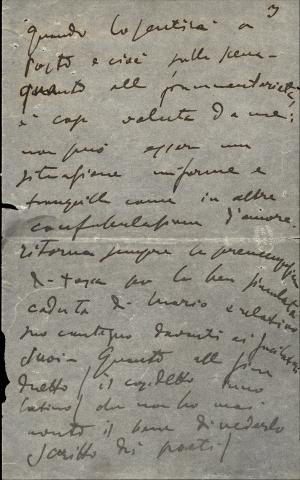 3
quando lo sentirà a
posto e cioè sulla scena –
Quanto alla frammentarietà,
è cosa voluta da me:
non può essere una
situazione uniforme e
tranquilla come in altre
confabulazioni d'amore.
ritorna sempre la preoccupazione
di Tosca per la ben simulata
caduta di Mario e relativo
suo contegno davanti ai fucilatori
Quanto alla fine
duetto (il cosidetto inno
latino) che non ho mai
avuto il bene di vederlo
scritto dai poeti)